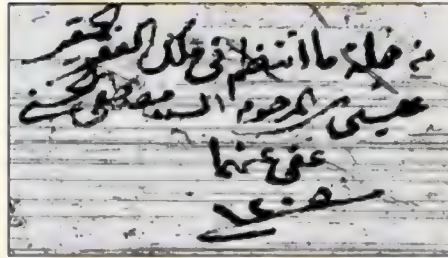 من جملة ما انتظم في ملك الفقير الحقير
عيسى بن المرحوم السيد مصطفى الحسني
عفي عنهما